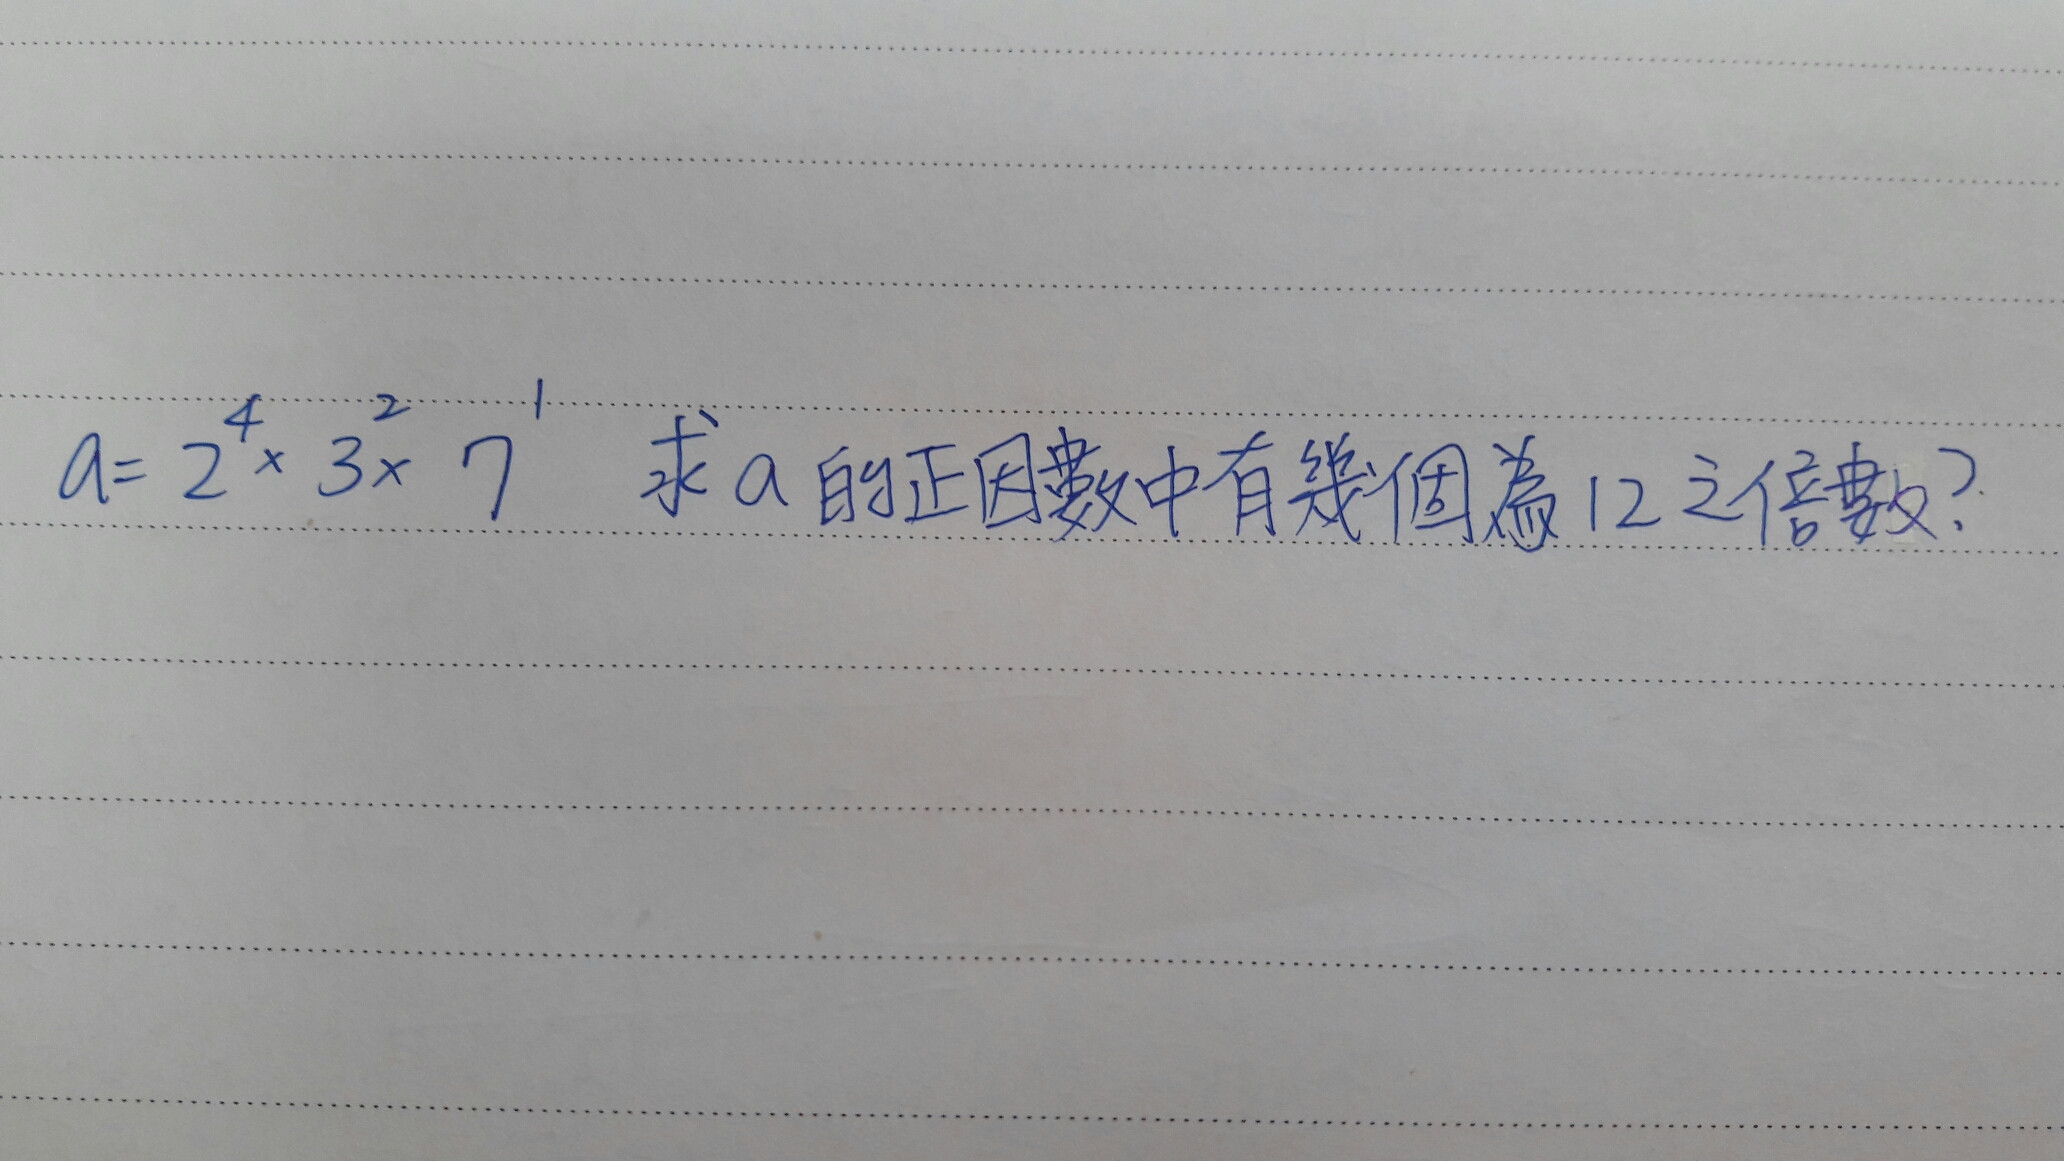 a = 2⁴ × 3² × 7¹ 求 a 的正因數中有幾個為 12 之倍數?